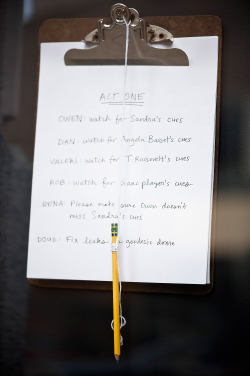 ACT ONE
OWEN: watch for Sandra's cues
DAN: watch for Angela Basset's cues
VALERI: watch for T. Roosevelt's cues
ROB: watch for isaac player's cues
DENA: Please make sure Owen doesn't
miss Sandra's cues
DOUG: Fix leaks in geodesic dome